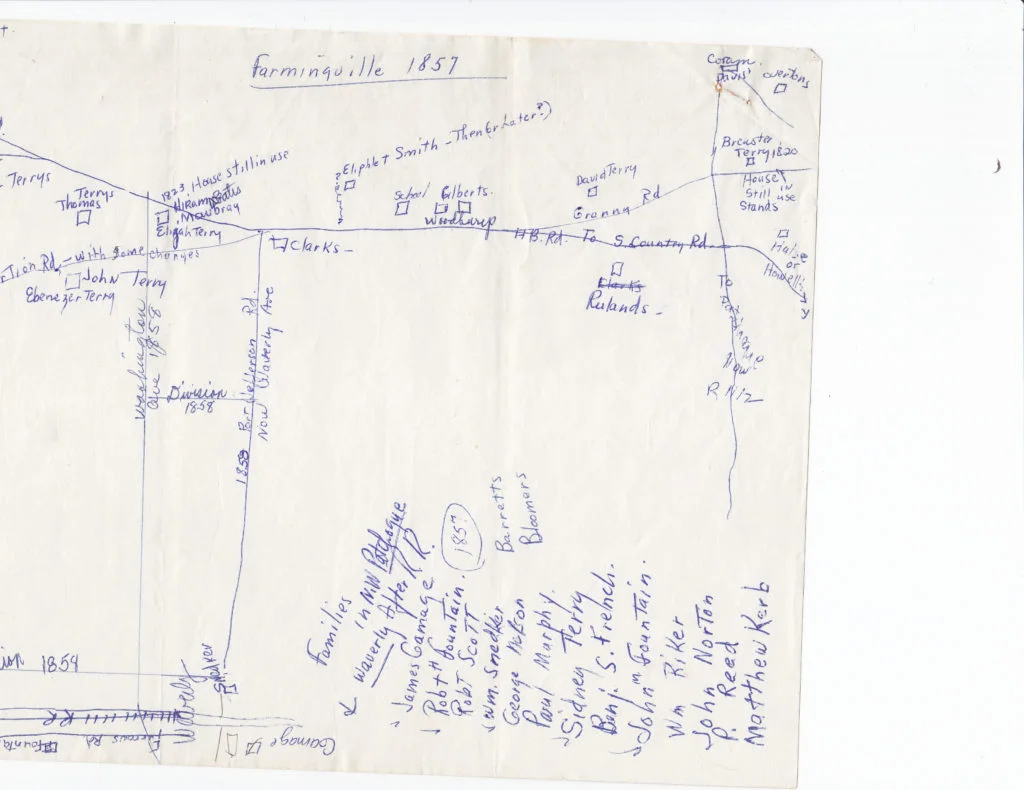 Farmingville 1857
Coram
Davis'
overtons
Brewster
Terry 1820
House
Still in use
Stands
Halse
or
Howell's
Eliphlet Smith - Then (or Later?)
1823 House still in use
Hiram
Mowbray
Elijah Terry
Terrys
Terrys
Thomas
School
Gilberts.
David Terry
Granny Rd
H.B. Rd. To S. Country Rd
Clarks -
tion Rd. - with Some changes
John Terry
Ebenezer Terry
Clarks
Rulands -
To
Now
Washington
ave 1858
Division
1858
1858 Port Jefferson Rd.
Now Waverly Ave
Families
in NW Patchogue
Waverly After R R.
1857
James Gamage
Robt H Fountain.
Robt Scott
Wm. Snedker
George Nelson
Paul Murphy.
Sidney Terry
Benj. S. French.
John M Fountain.
Wm Riker
John Norton
P. Reed
Matthew Kerb
Barretts
Bloomers
sion 1854
Waverly
RR
Furrows Rd
Founta
Gamage